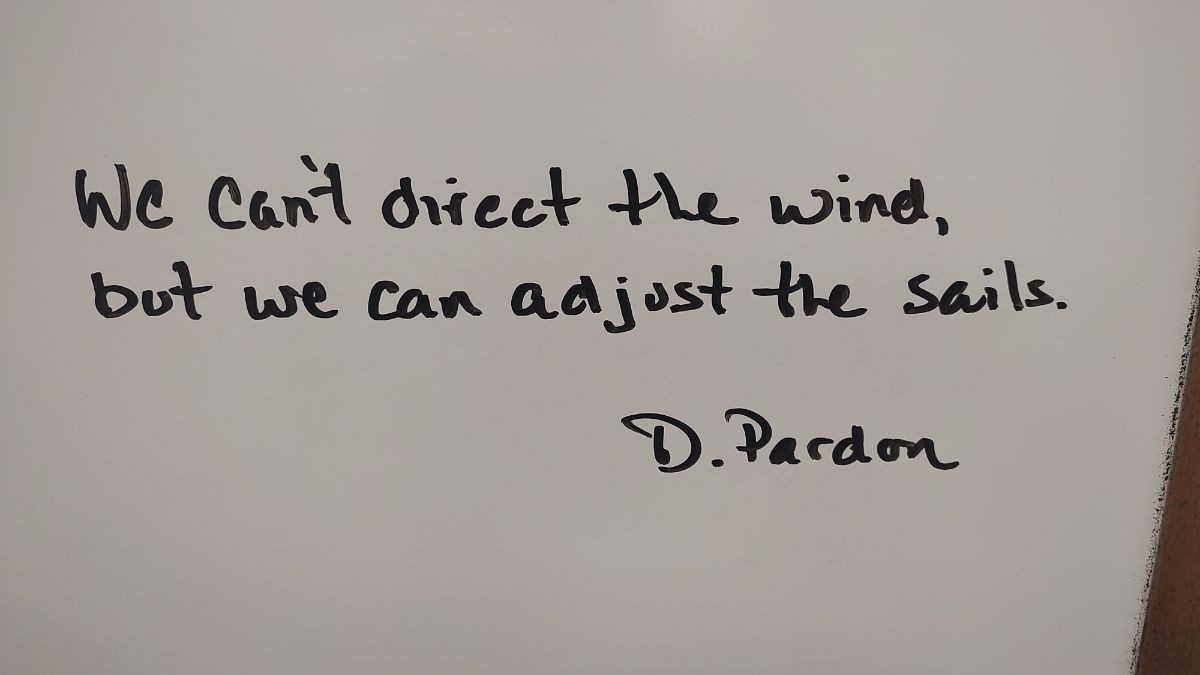 We can't direct the wind,
but we can adjust the sails.
D. Pardon